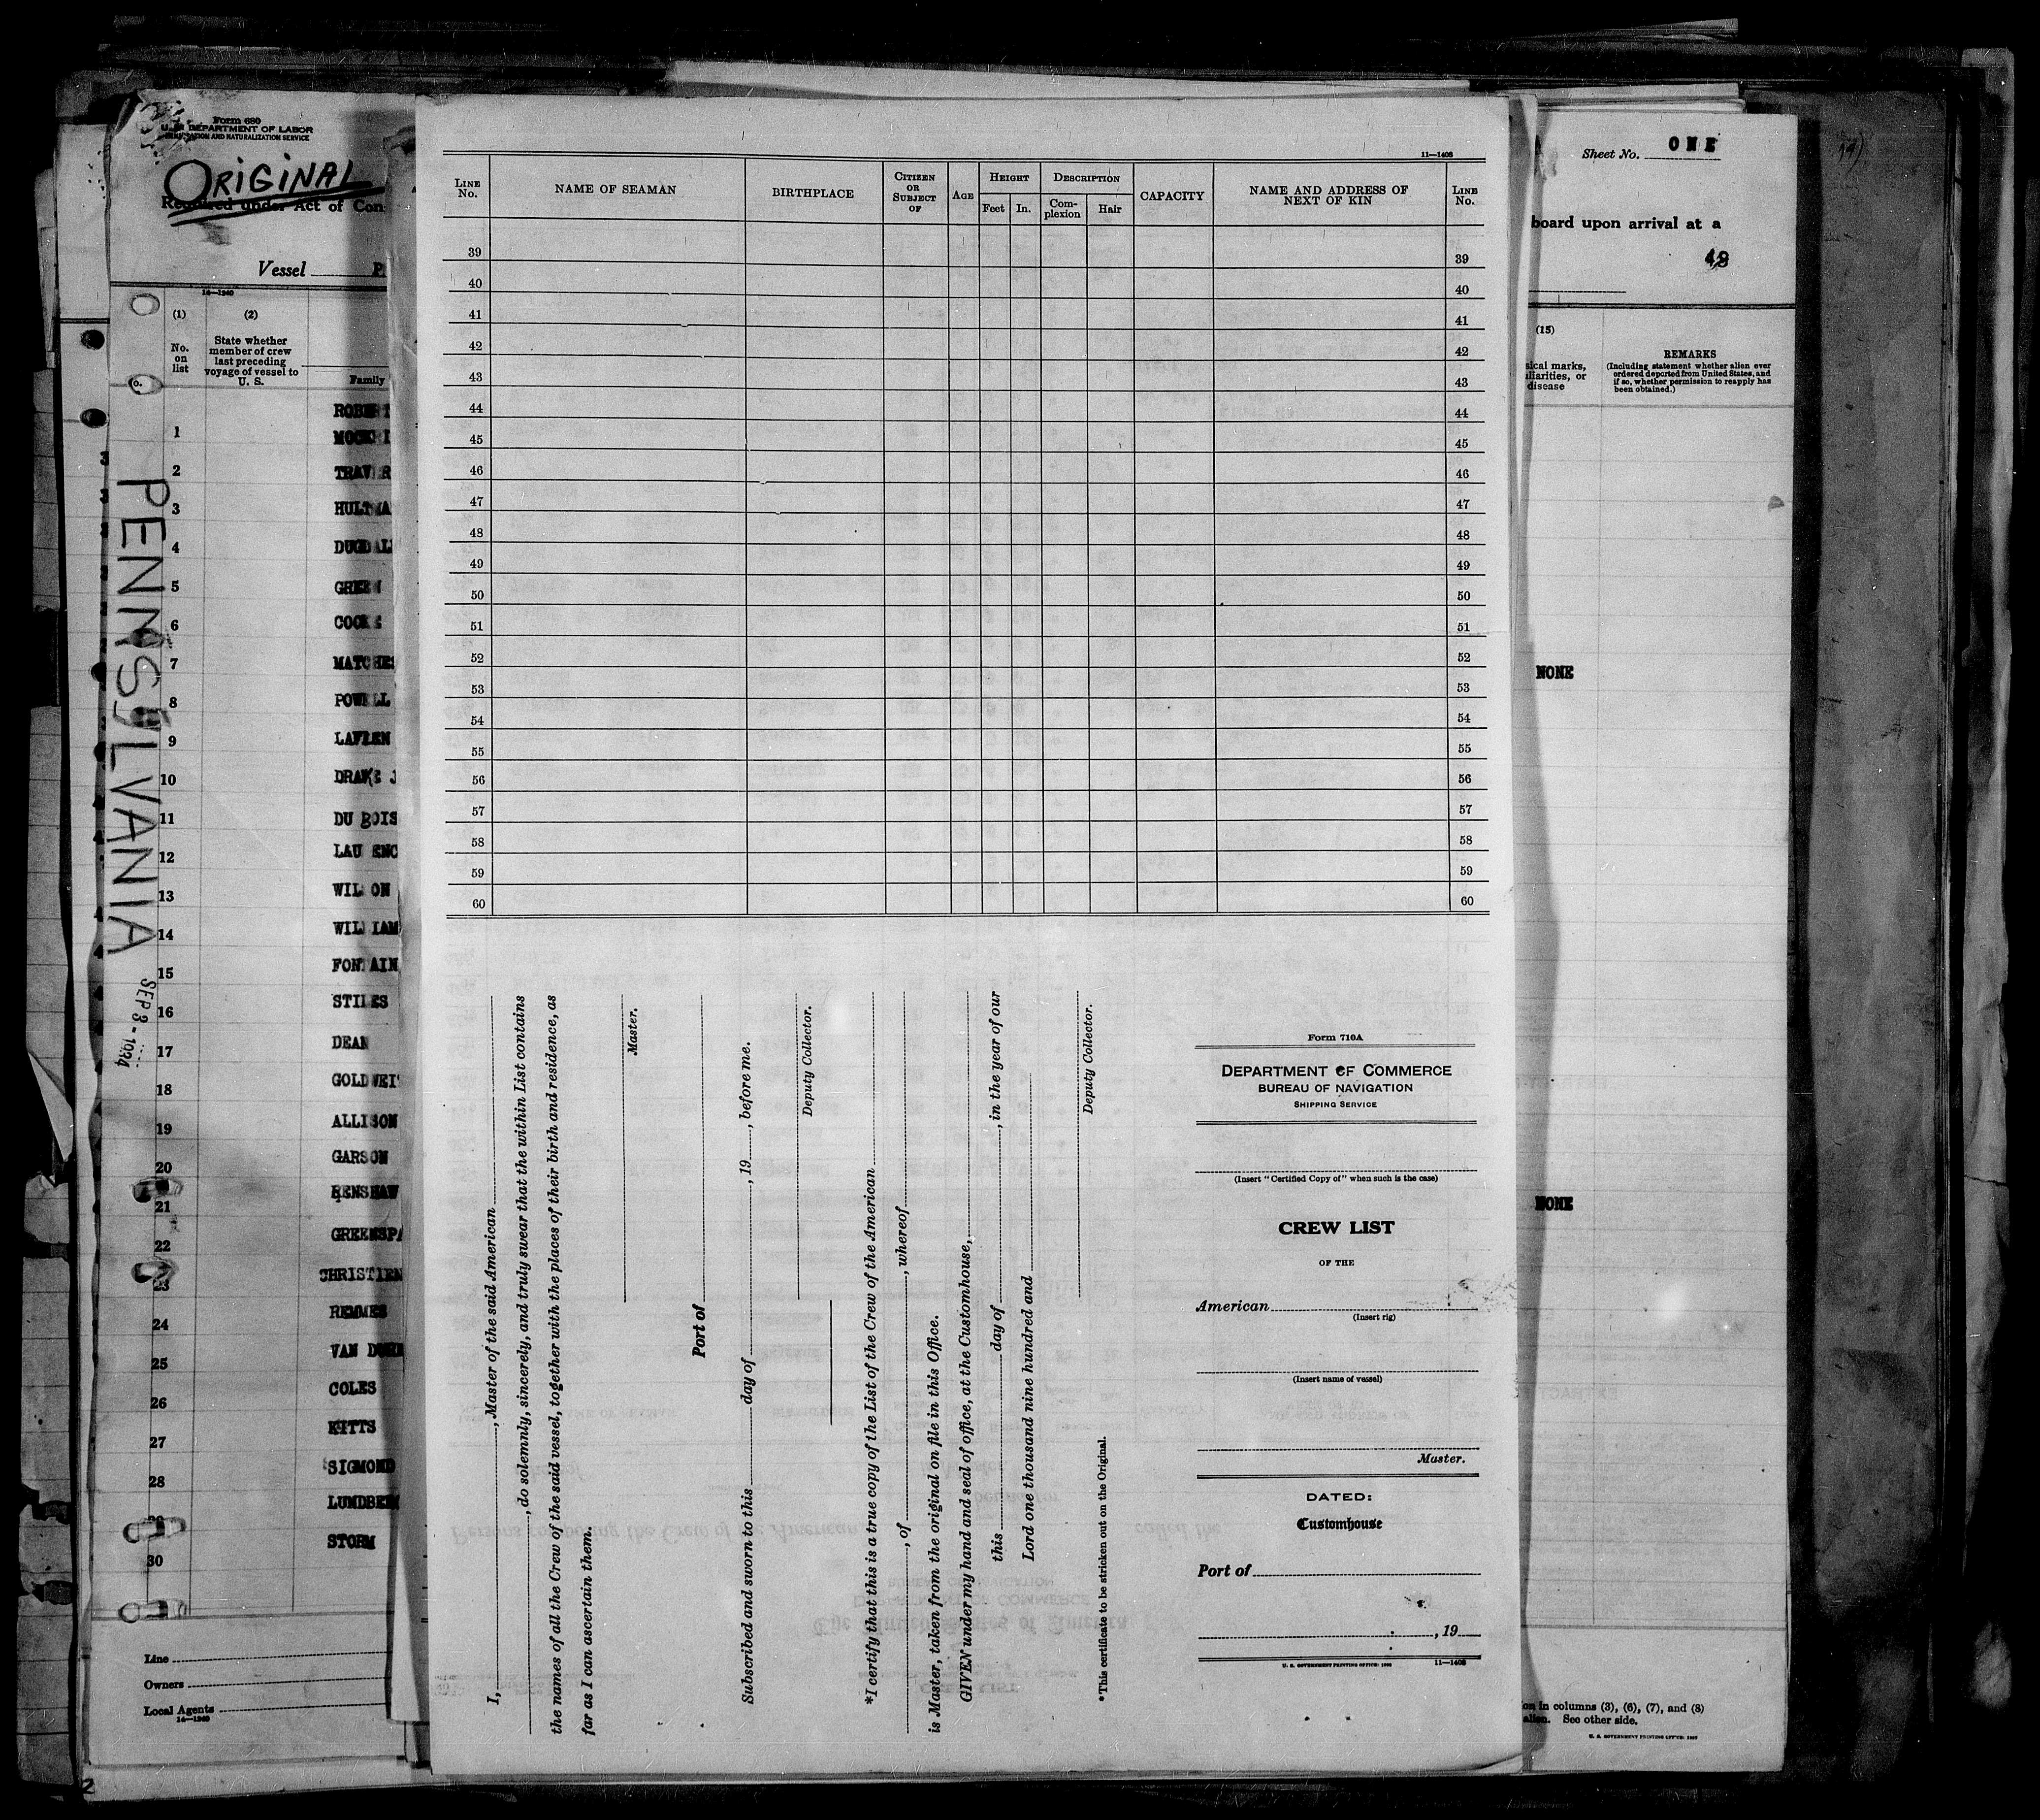 Form 680
U. S. DEPARTMENT OF LABOR
IMMIGRATION AND NATURALIZATION SERVICE
ORIGINAL
Required under Act of Con
Vessel
14—1240
(1)
(2)
No.
on
list
State whether
member of crew
last preceding
voyage of vessel to
U. S.
Family
ROBERT
1
2
TRAVER
3
4
DUGDAL
5 GREEN
6
7 MATCHES
8 POWELL
9
10 DRAKE J
11 DU BOIS
12 LAU ENC
13 WIL ON
14 WIL IAM
15 FONTAIN
16 STILES
17 DEAN
18 GOLDWEI
19 ALLISON
20 GARSON
21 RENSHAW
22 GREENSPA
23 CHRISTIEN
24 REMMES
25 VAN
26 COLES
27 KITTS
28 SIGMOND
LUNDBE
30 STORM
PENNSYLVANIA
SEP 3 - 1934
Line
Owners
Local Agents
14—1240
2
11—1408
LINE
No.
NAME OF SEAMAN
BIRTHPLACE
CITIZEN
OR
SUBJECT
OF
AGE
HEIGHT
Feet
In.
DESCRIPTION
Com-
plexion
Hair
CAPACITY
NAME AND ADDRESS OF
NEXT OF KIN
LINE
No.
39 39
40 40
41 41
42 42
43 43
44 44
45 45
46 46
47 47
48 48
49 49
50 50
51 51
52 52
53 53
54 54
55 55
56 56
57 57
58 58
59 59
60 60
I, , Master of the said American
, do solemnly, sincerely, and truly swear that the within List contains
the names of all the Crew of the said vessel, together with the places of their birth and residence, as
far as I can ascertain them.
Master.
Port of
Subscribed and sworn to this day of , 19 , before me.
Deputy Collector.
*I certify that this is a true copy of the List of the Crew of the American
, of , whereof
is Master, taken from the original on file in this Office.
GIVEN under my hand and seal of office, at the Customhouse,
this day of , in the year of our
Lord one thousand nine hundred and
Deputy Collector.
*This certificate to be stricken out on the Original.
Form 710A
DEPARTMENT OF COMMERCE
BUREAU OF NAVIGATION
SHIPPING SERVICE
(Insert "Certified Copy of" when such is the case)
CREW LIST
OF THE
American
(Insert rig)
(Insert name of vessel)
Master.
DATED:
Customhouse
Port of
, 19
U. S. GOVERNMENT PRINTING OFFICE: 11—1408
Sheet No. ONE
board upon arrival at a
(15)
sical marks,
uliarities, or
disease
REMARKS
(Including statement whether alien ever
ordered deported from United States, and
if so, whether permission to reapply has
been obtained.)
NONE
NONE
on in columns (3), (6), (7), and (8)
alien. See other side.
U. S. GOVERNMENT PRINTING OFFICE: